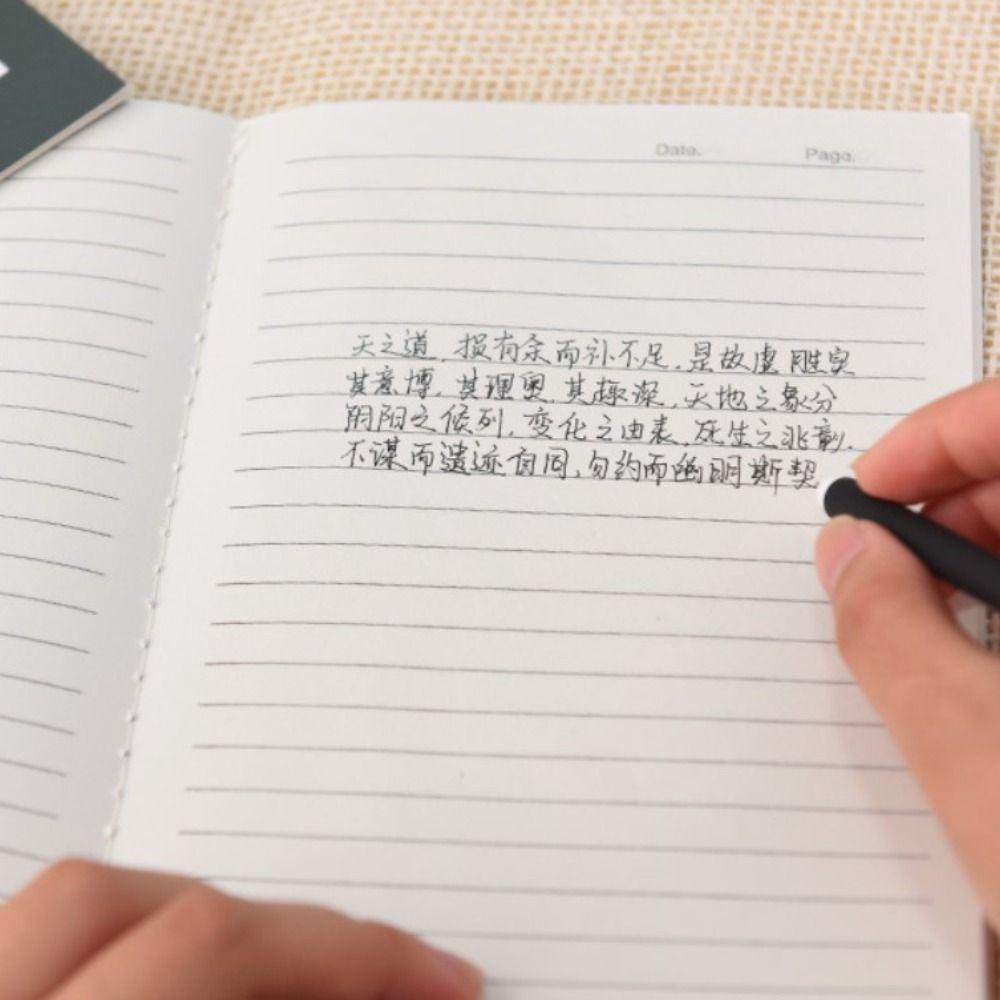 Date. Page.
天之道,损有余而补不足,是故虚胜实
其意博,其理奥,其趣深,天地之象分
阴阳之候列,变化之由表,死生之兆彰,
不谋而遗迹自同,勿约而幽明斯契